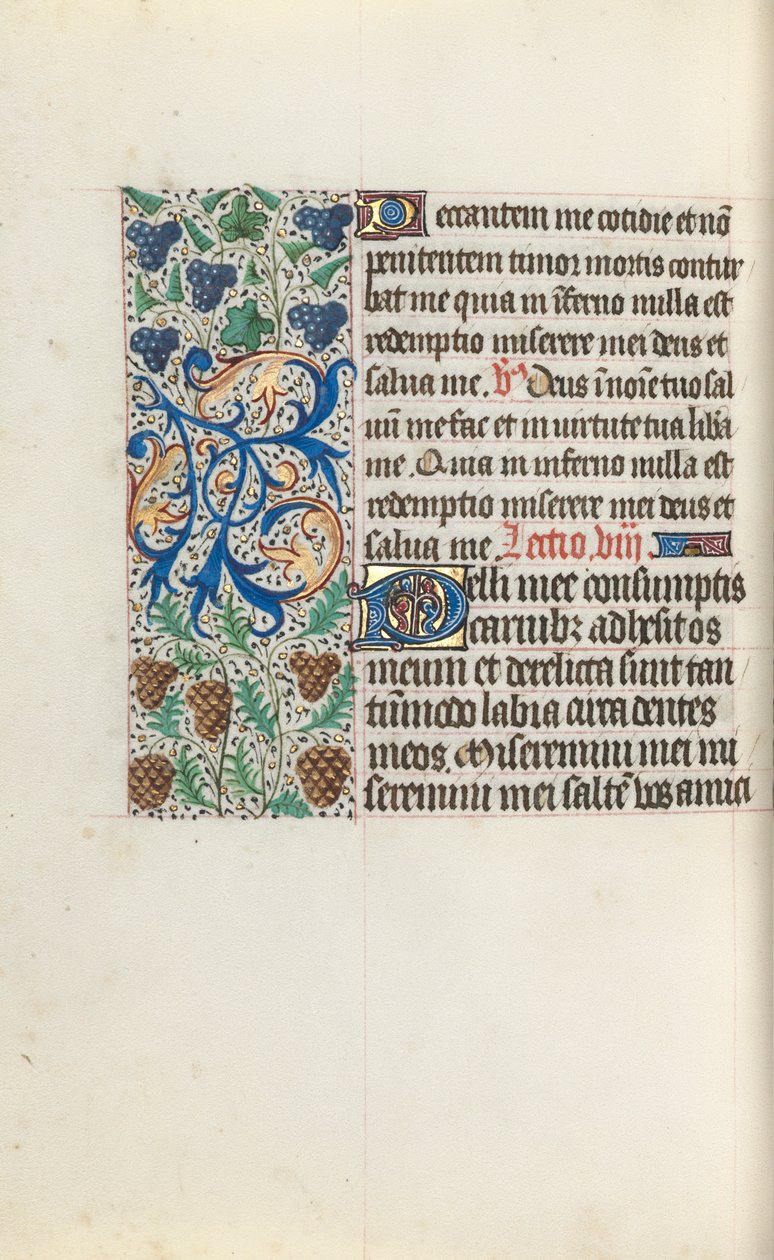 Peccantem me cotidie et nō
penitentem timor mortis contur
bat me quia in īferno nulla est
redemptio miserere mei deus et
salua me. Vs Deus ī noīe tuo sal
uū me fac et in uirtute tua lib'a
me. Quia in inferno nulla est
redemptio miserere mei deus et
salua me. Lectio. viii.
Pelli mee consumptis
carnibꝫ adhesit os
meum et derelicta sunt tan
tūmodo labia circa dentes
meos. Miseremini mei mi
seremini mei saltē vos amici